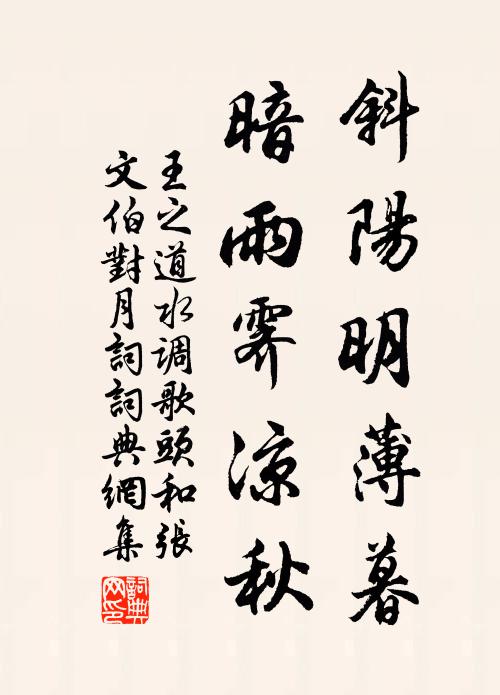 斜陽明薄暮
暗雨霽凉秋
王之道水调歌頭和張
文伯對月詞詞典網集
詞典
网印